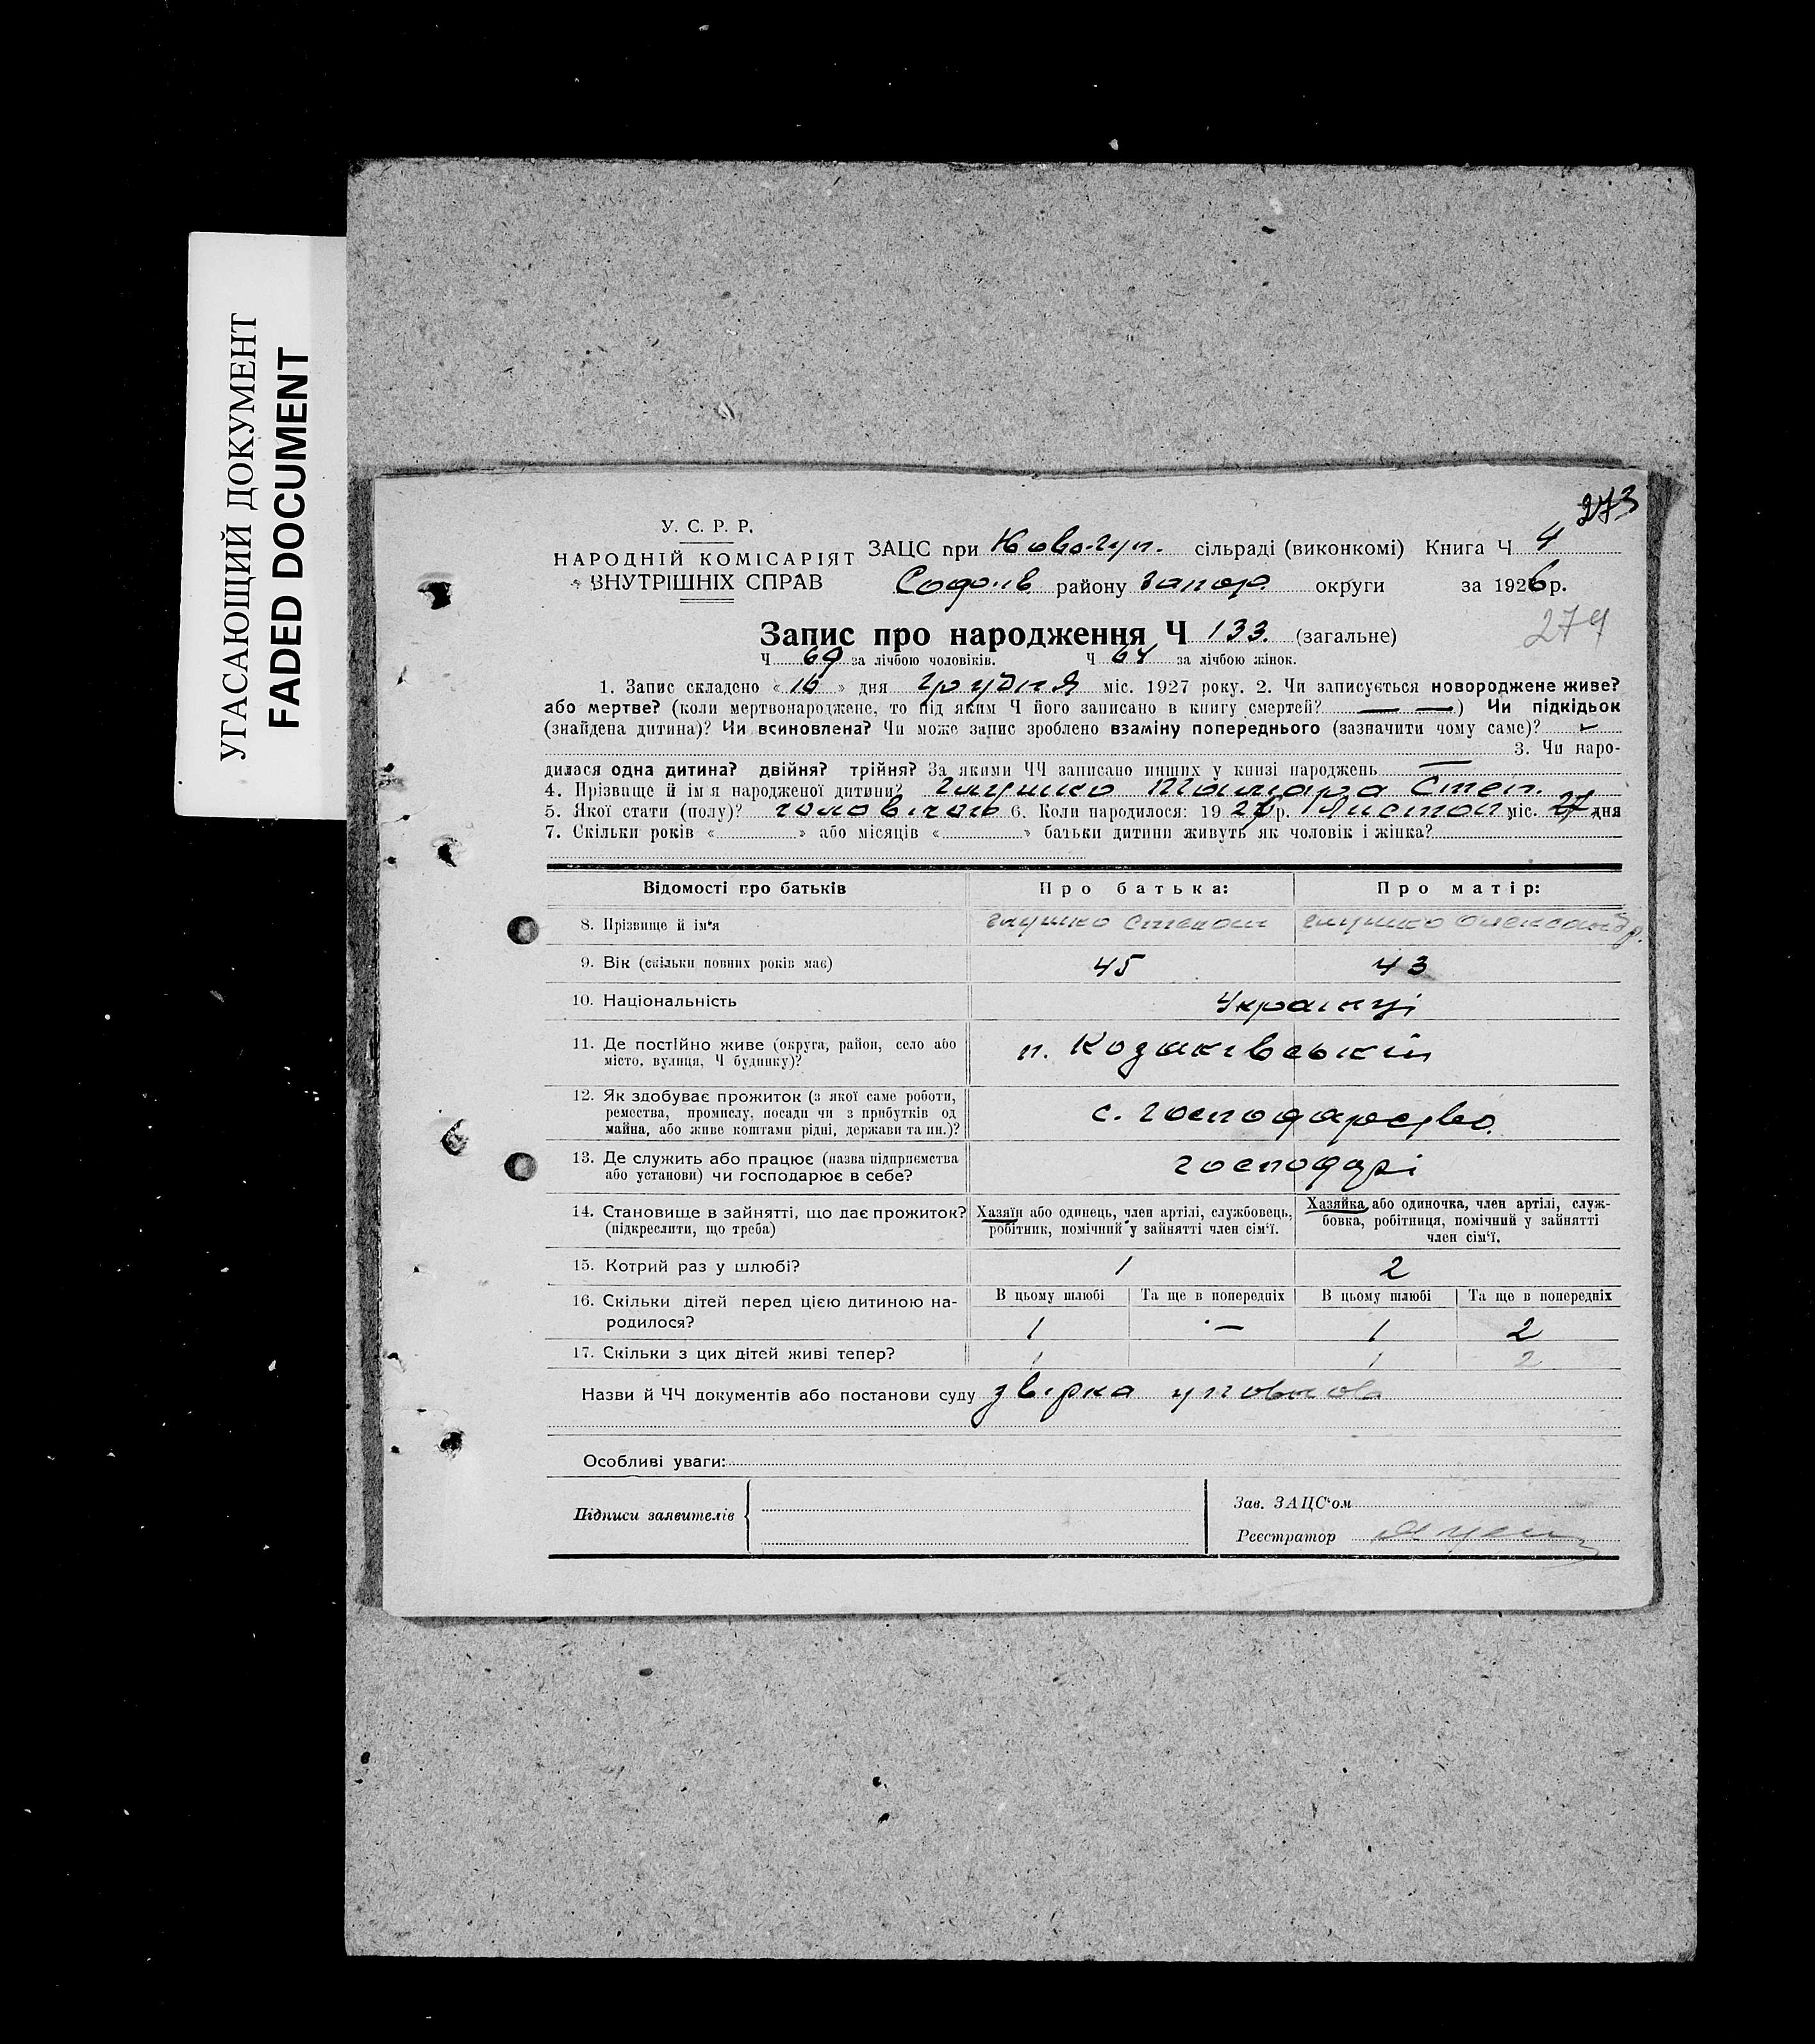 УГАСАЮЩИЙ ДОКУМЕНТ
FADED DOCUMENT
273
У. С. Р. Р.
НАРОДНІЙ КОМІСАРІЯТ
ВНУТРІШНІХ СПРАВ
ЗАЦС при Ново-Гуп. сільраді (виконкомі) Книга Ч 4
Софіїв району Запор. округи за 1926 р.
274
Запис про народження Ч 133. (загальне)
Ч 69 за лічбою чоловіків. Ч 64 за лічбою жінок.
1. Запис складено « 16 » дня грудня міс. 1927 року. 2. Чи записується новороджене живе?
або мертве? (коли мертвонароджене, то під яким Ч його записано в книгу смертей? — —) Чи підкідьок
(знайдена дитина)? Чи всиновлена? Чи може запис зроблено взаміну попереднього (зазначити чому саме)?
3. Чи наро-
дилася одна дитина? двійня? трійня? За якими ЧЧ записано инших у книзі народжень —
4. Прізвище й ім'я народженої дитини? Глушко Тамара Степ.
5. Якої статі (полу)? чоловічоі 6. Коли народилося: 1926 р. Листоп міс. 27 дня
7. Скільки років « » або місяців « » батьки дитини живуть як чоловік і жінка?
Відомості про батьків Про батька: Про матір:
8. Прізвище й ім'я Глушко Степан Глушко Олександр.
9. Вік (скільки повних років має) 45 43
10. Національність Українці
11. Де постійно живе (округа, район, село або
місто, вулиця, Ч будинку)? п. Козаківський
12. Як здобуває прожиток (з якої саме роботи,
ремества, промислу, посади чи з прибутків од
майна, або живе коштами рідні, держави та ин.)? с. господарство
13. Де служить або працює (назва підприємства
або установи) чи господарює в себе? господарі
14. Становище в зайнятті, що дає прожиток?
(підкреслити, що треба)
Хазяїн або одинець, член артілі, службовець,
робітник, помічний у зайнятті член сім'ї.
Хазяйка або одиночка, член артілі, служ-
бовка, робітниця, помічний у зайнятті
член сім'ї.
15. Котрий раз у шлюбі? 1 2
В цьому шлюбі Та ще в попередніх В цьому шлюбі Та ще в попередніх
16. Скільки дітей перед цією дитиною на-
родилося? 1 — 1 2
17. Скільки з цих дітей живі тепер? 1 1 2
Назви й ЧЧ документів або постанови суду звірка
Особливі уваги:
Підписи заявителів
Зав. ЗАЦС'ом
Реєстратор